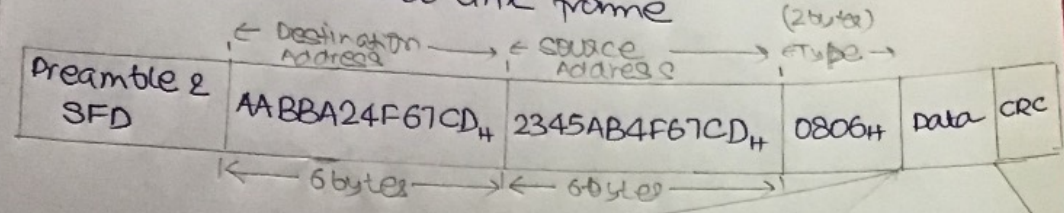 frame
(2bytes)
← Destination → ← Source → ← Type →
Address Address
Preamble & SFD AABBA24F67CDH 2345AB4F67CDH 0806H Data CRC
← 6bytes → ← 6bytes →